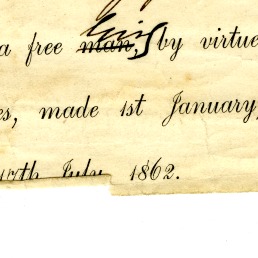 a free man, by virtue
es, made 1st January,
17th July 1862.